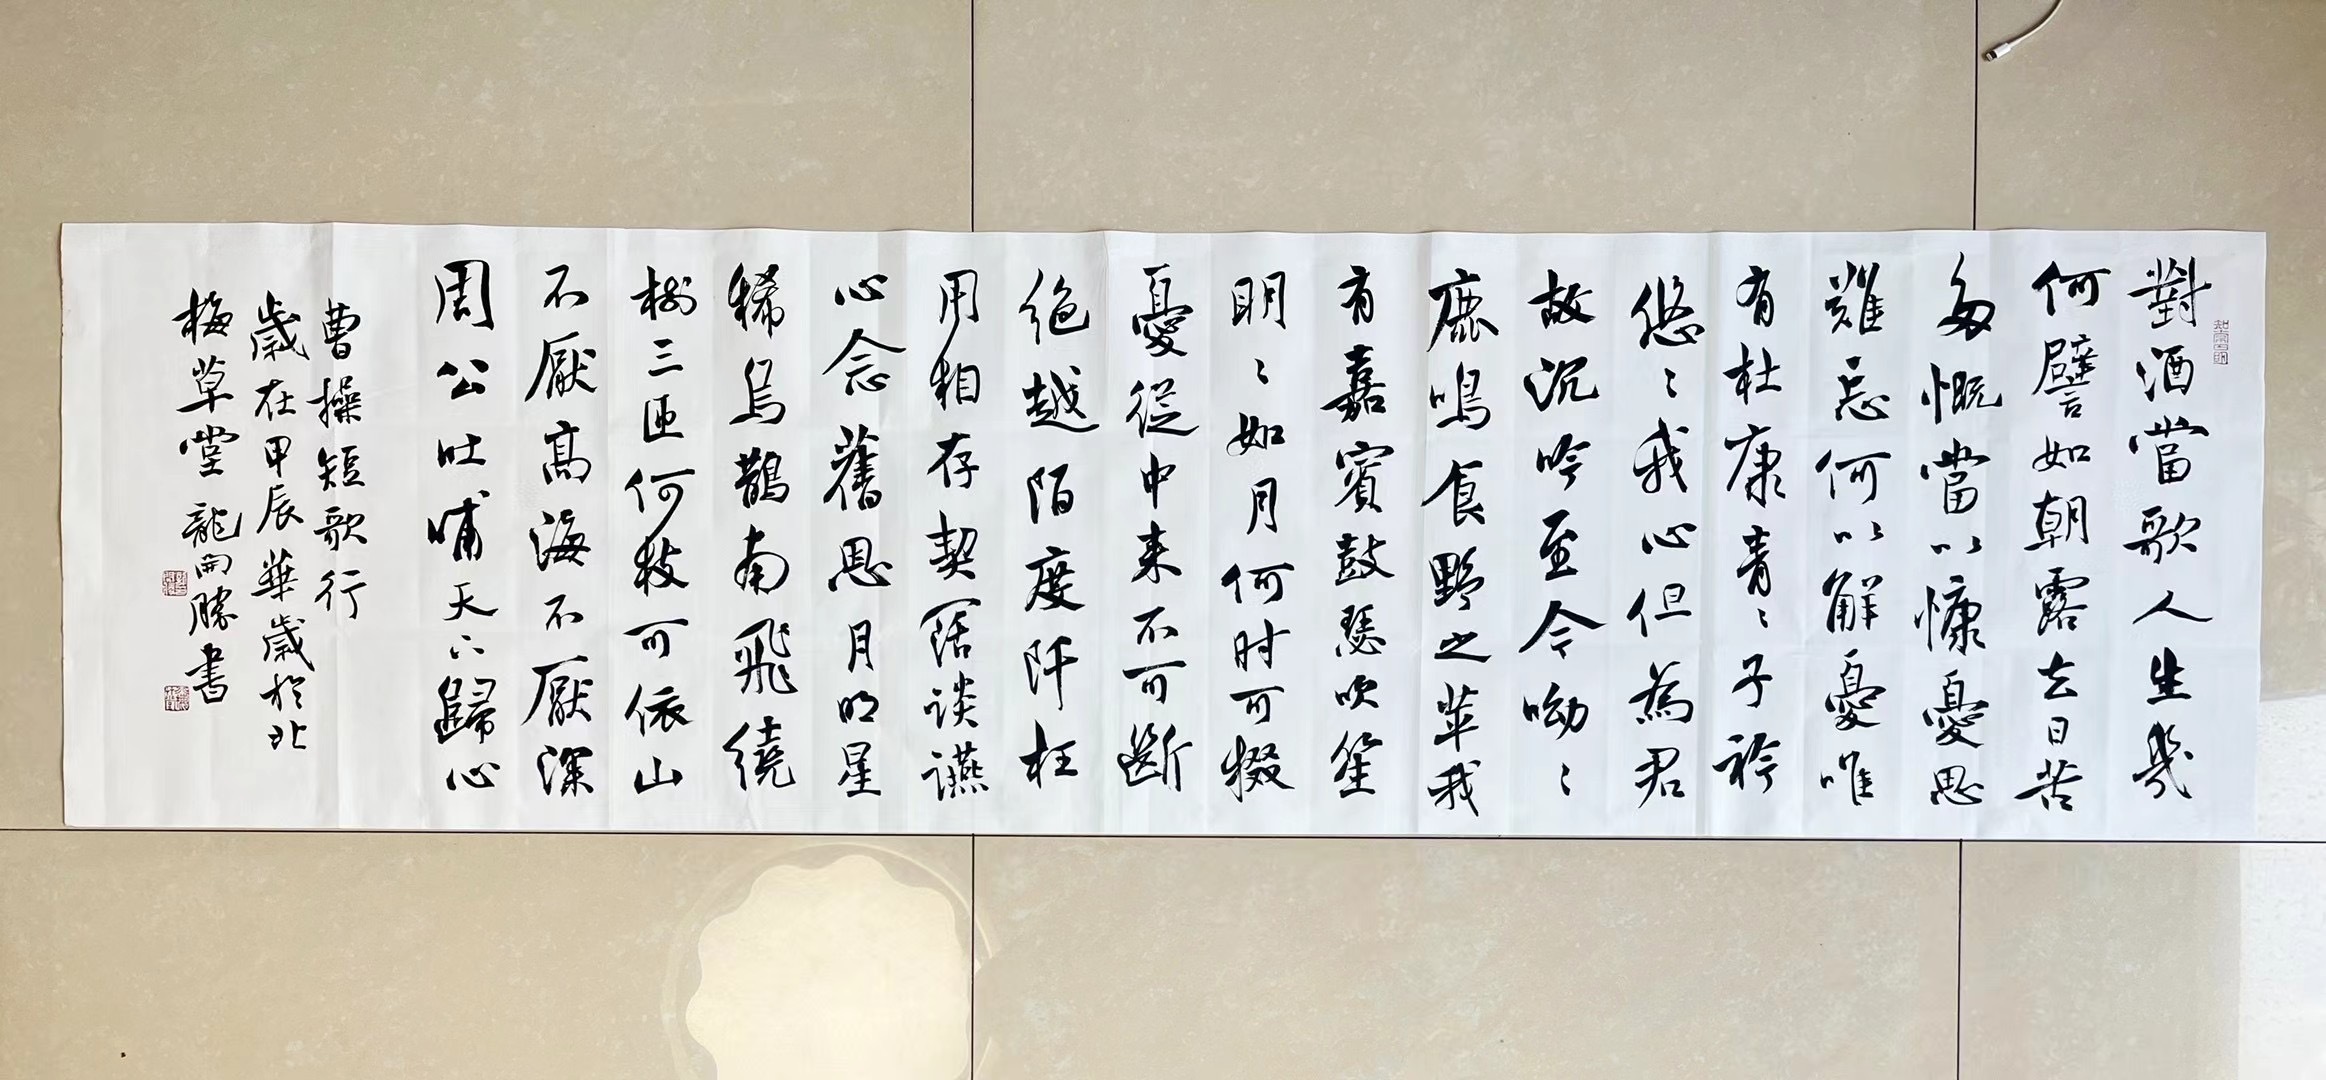 對酒當歌人生幾
何譬如朝露去日苦
多慨當以慷憂思
難忘何以解憂唯
有杜康青〻子衿
悠〻我心但為君
故沉吟至今呦〻
鹿鳴食野之苹我
有嘉賓鼓瑟吹笙
明〻如月何时可掇
憂從中来不可斷
絶越陌度阡枉
用相存契闊談讌
心念舊恩月明星
稀烏鵲南飛繞
樹三匝何枝可依山
不厭高海不厭深
周公吐哺天下歸心
曹操短歌行
歲在甲辰華歲於北
梅草堂龍開勝書